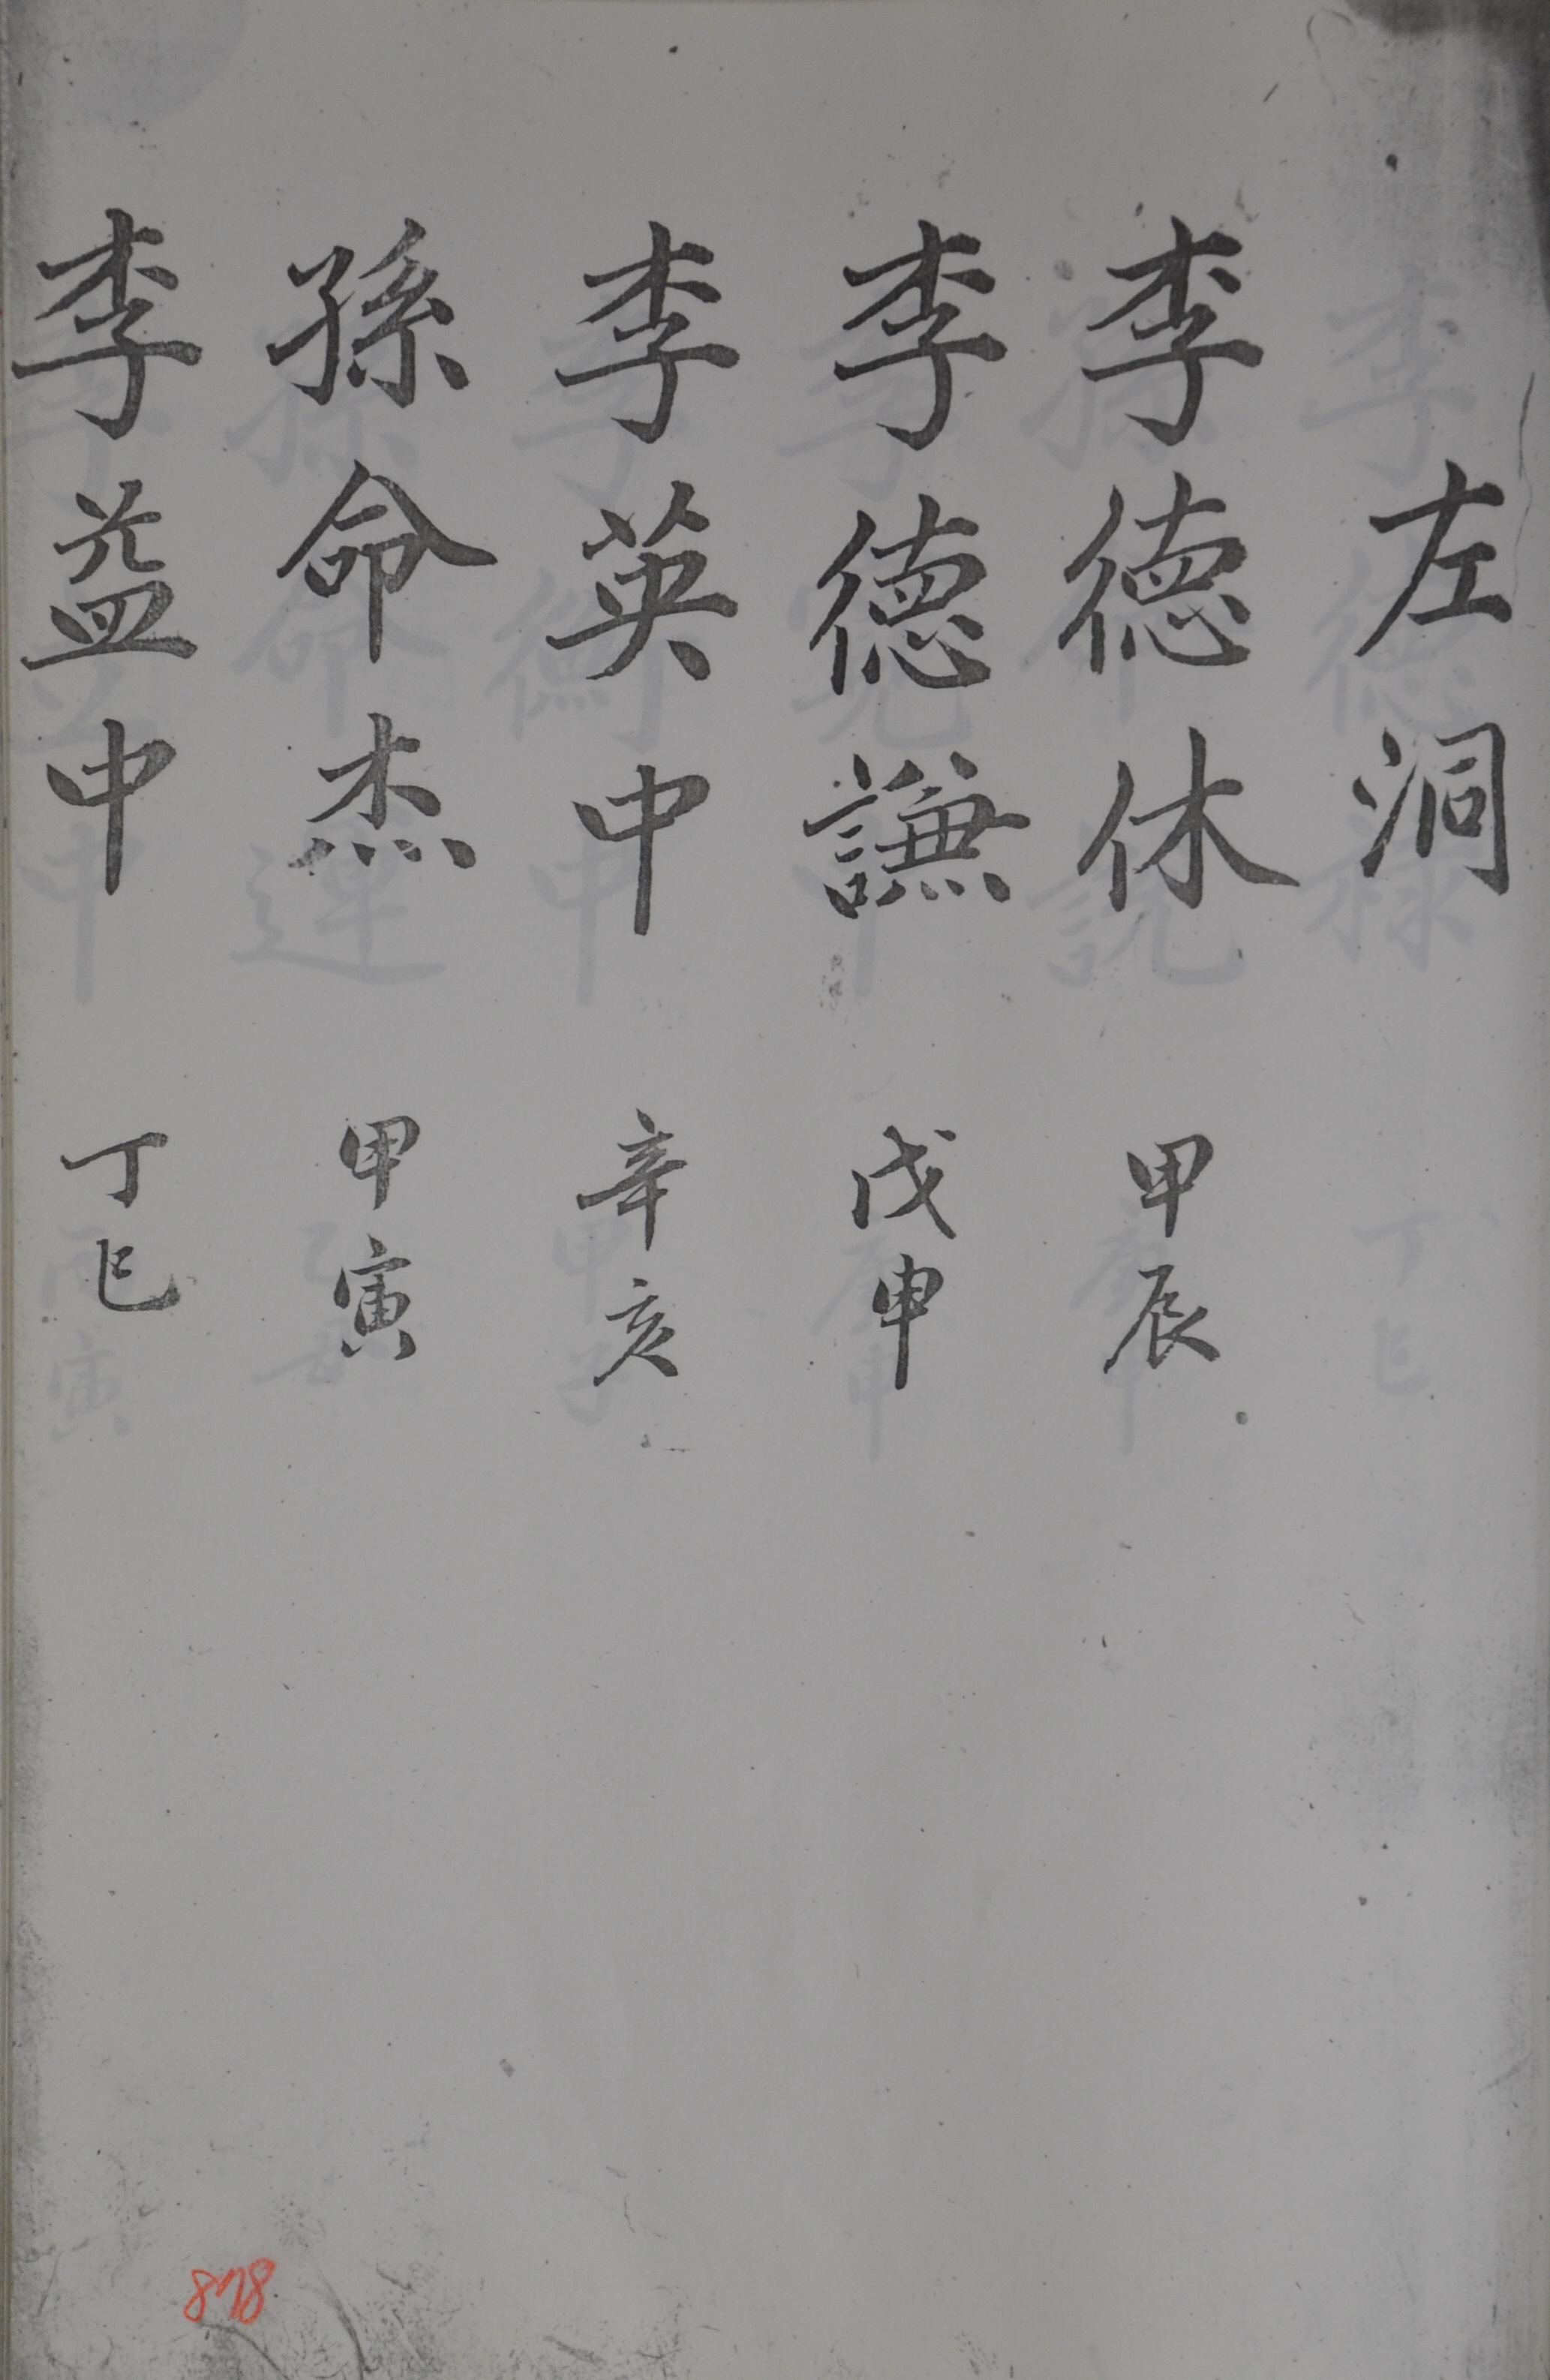 左洞
李德休 甲辰
李德謙 戊申
李英中 辛亥
孫命杰 甲寅
李益中 丁巳
878